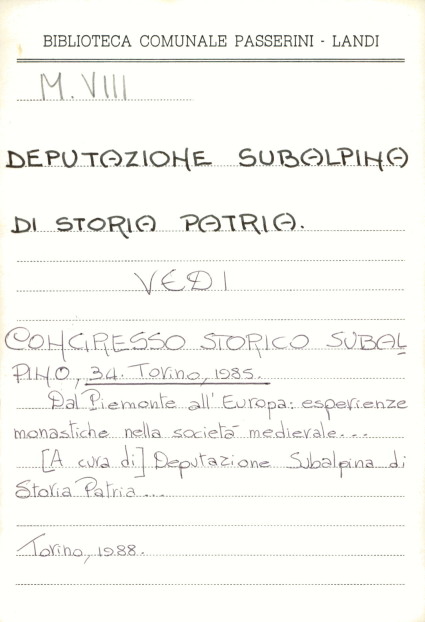 BIBLIOTECA COMUNALE PASSERINI - LANDI
M. VIII
DEPUTAZIONE SUBALPINA
DI STORIA PATRIA.
VEDI
CONGRESSO STORICO SUBAL-
PINO, 34. Torino, 1985.
Dal Piemonte all'Europa: esperienze
monastiche nella società medievale...
[A cura di] Deputazione Subalpina di
Storia Patria...
Torino, 1988.